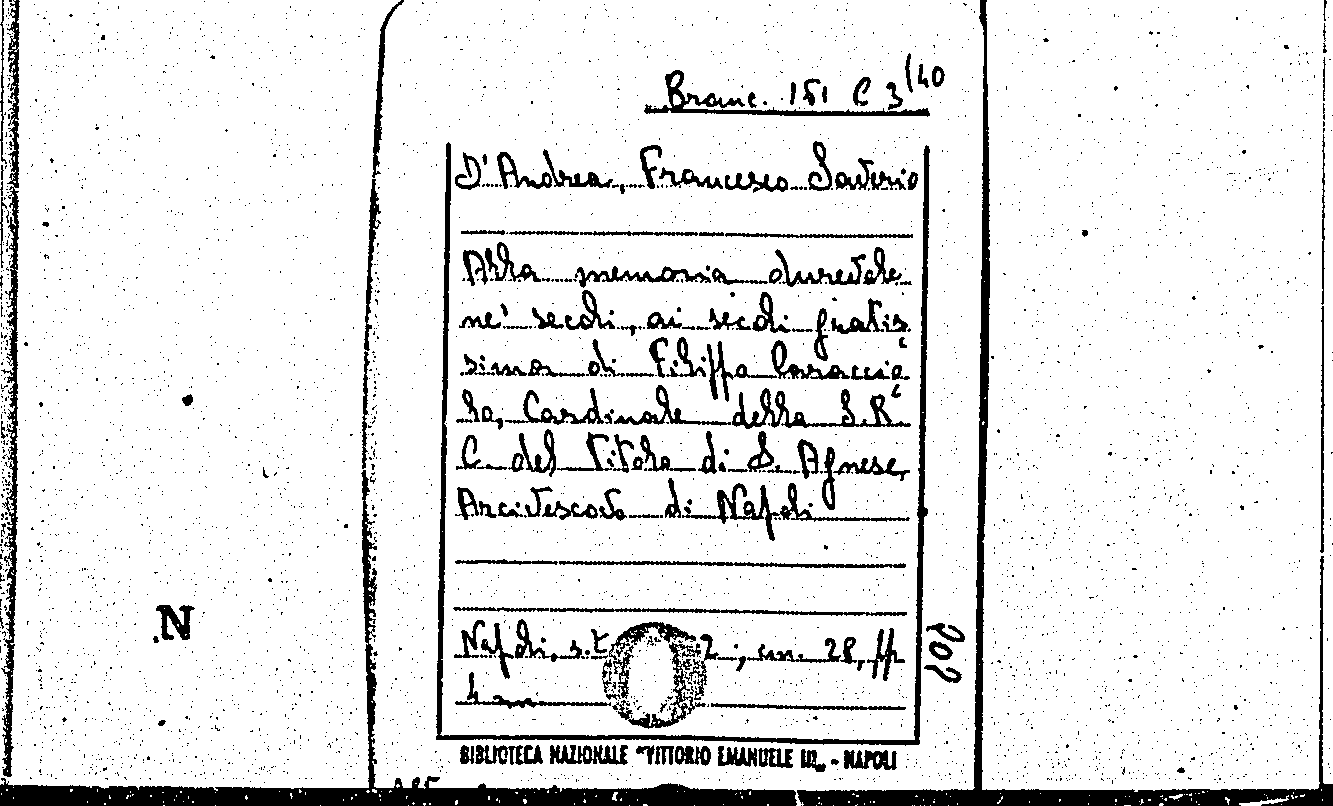 Branc. 151 C 3/40
D'Andrea, Francesco Saverio
Alla memoria durevole
ne' secoli, ai secoli gratis
sima di Filippo Caraccio
lo, Cardinale della S. R.
C. del Titolo di S. Agnese,
Arcivescovo di Napoli
Napoli, s.t. 2; cm. 28, pp
4 nn.
BIBLIOTECA NAZIONALE "VITTORIO EMANUELE III„ - NAPOLI
N